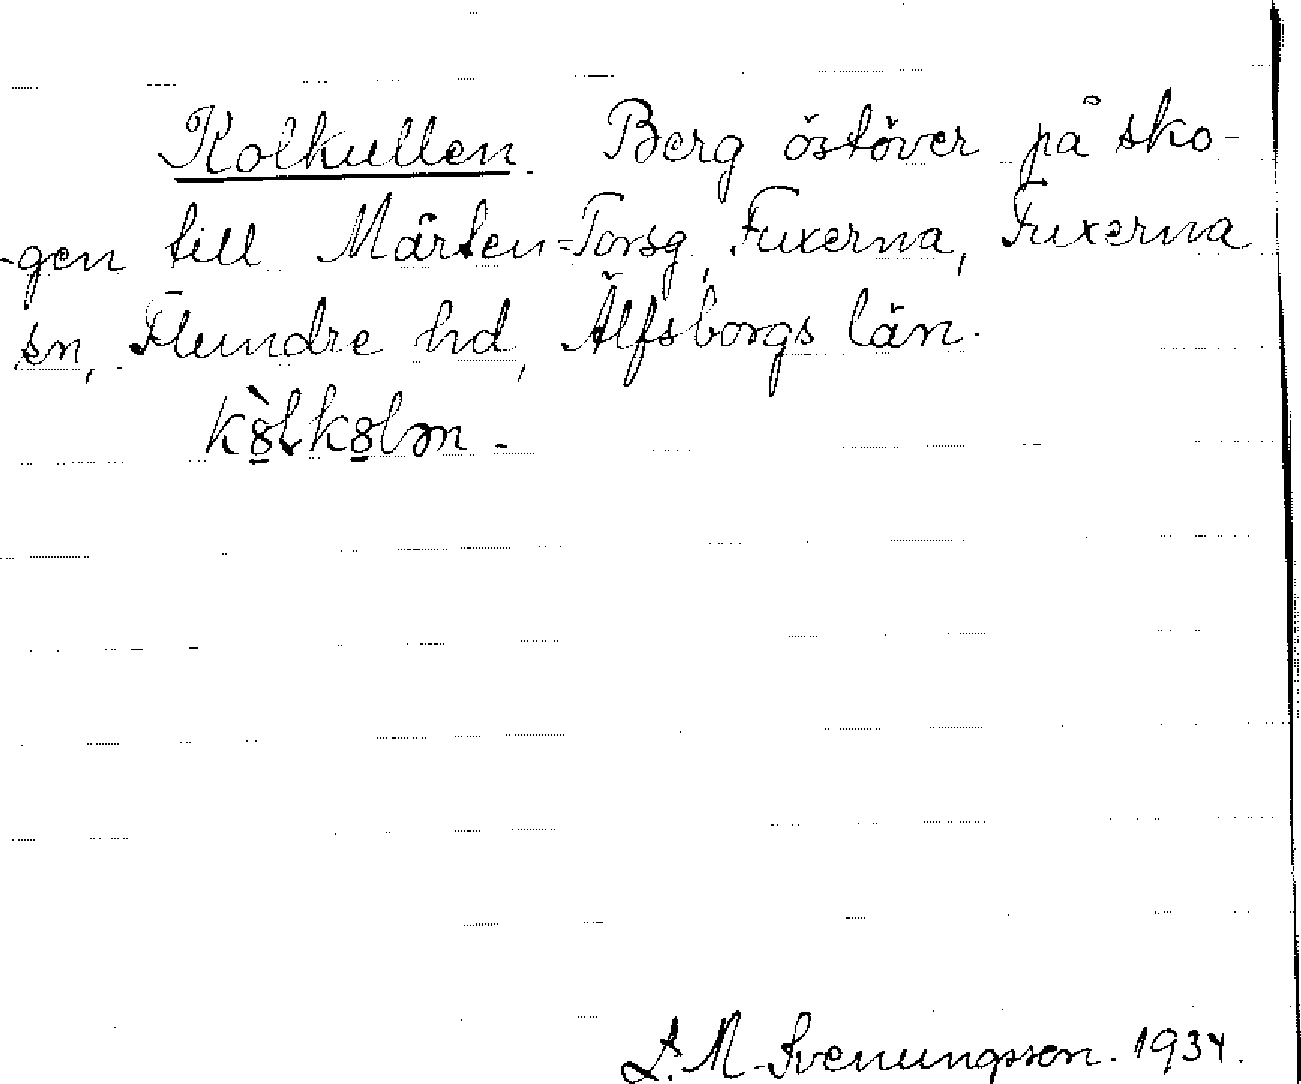 Kolkullen. Berg östöver på sko-
-gen till Mårten-Torsg, Fuxerna, Fuxerna
sn, Flundre hd, Älfsborgs län.
L. M. Svenungsson. 1934.